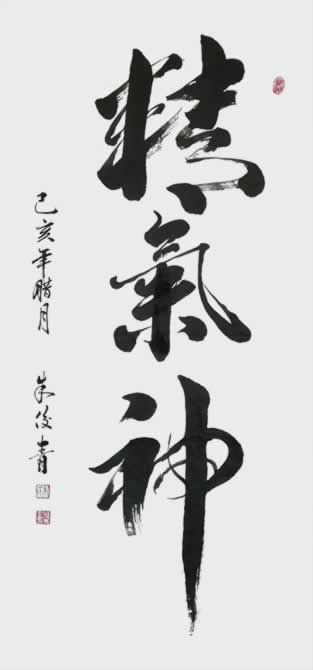 精氣神
己亥年腊月
朱俊青